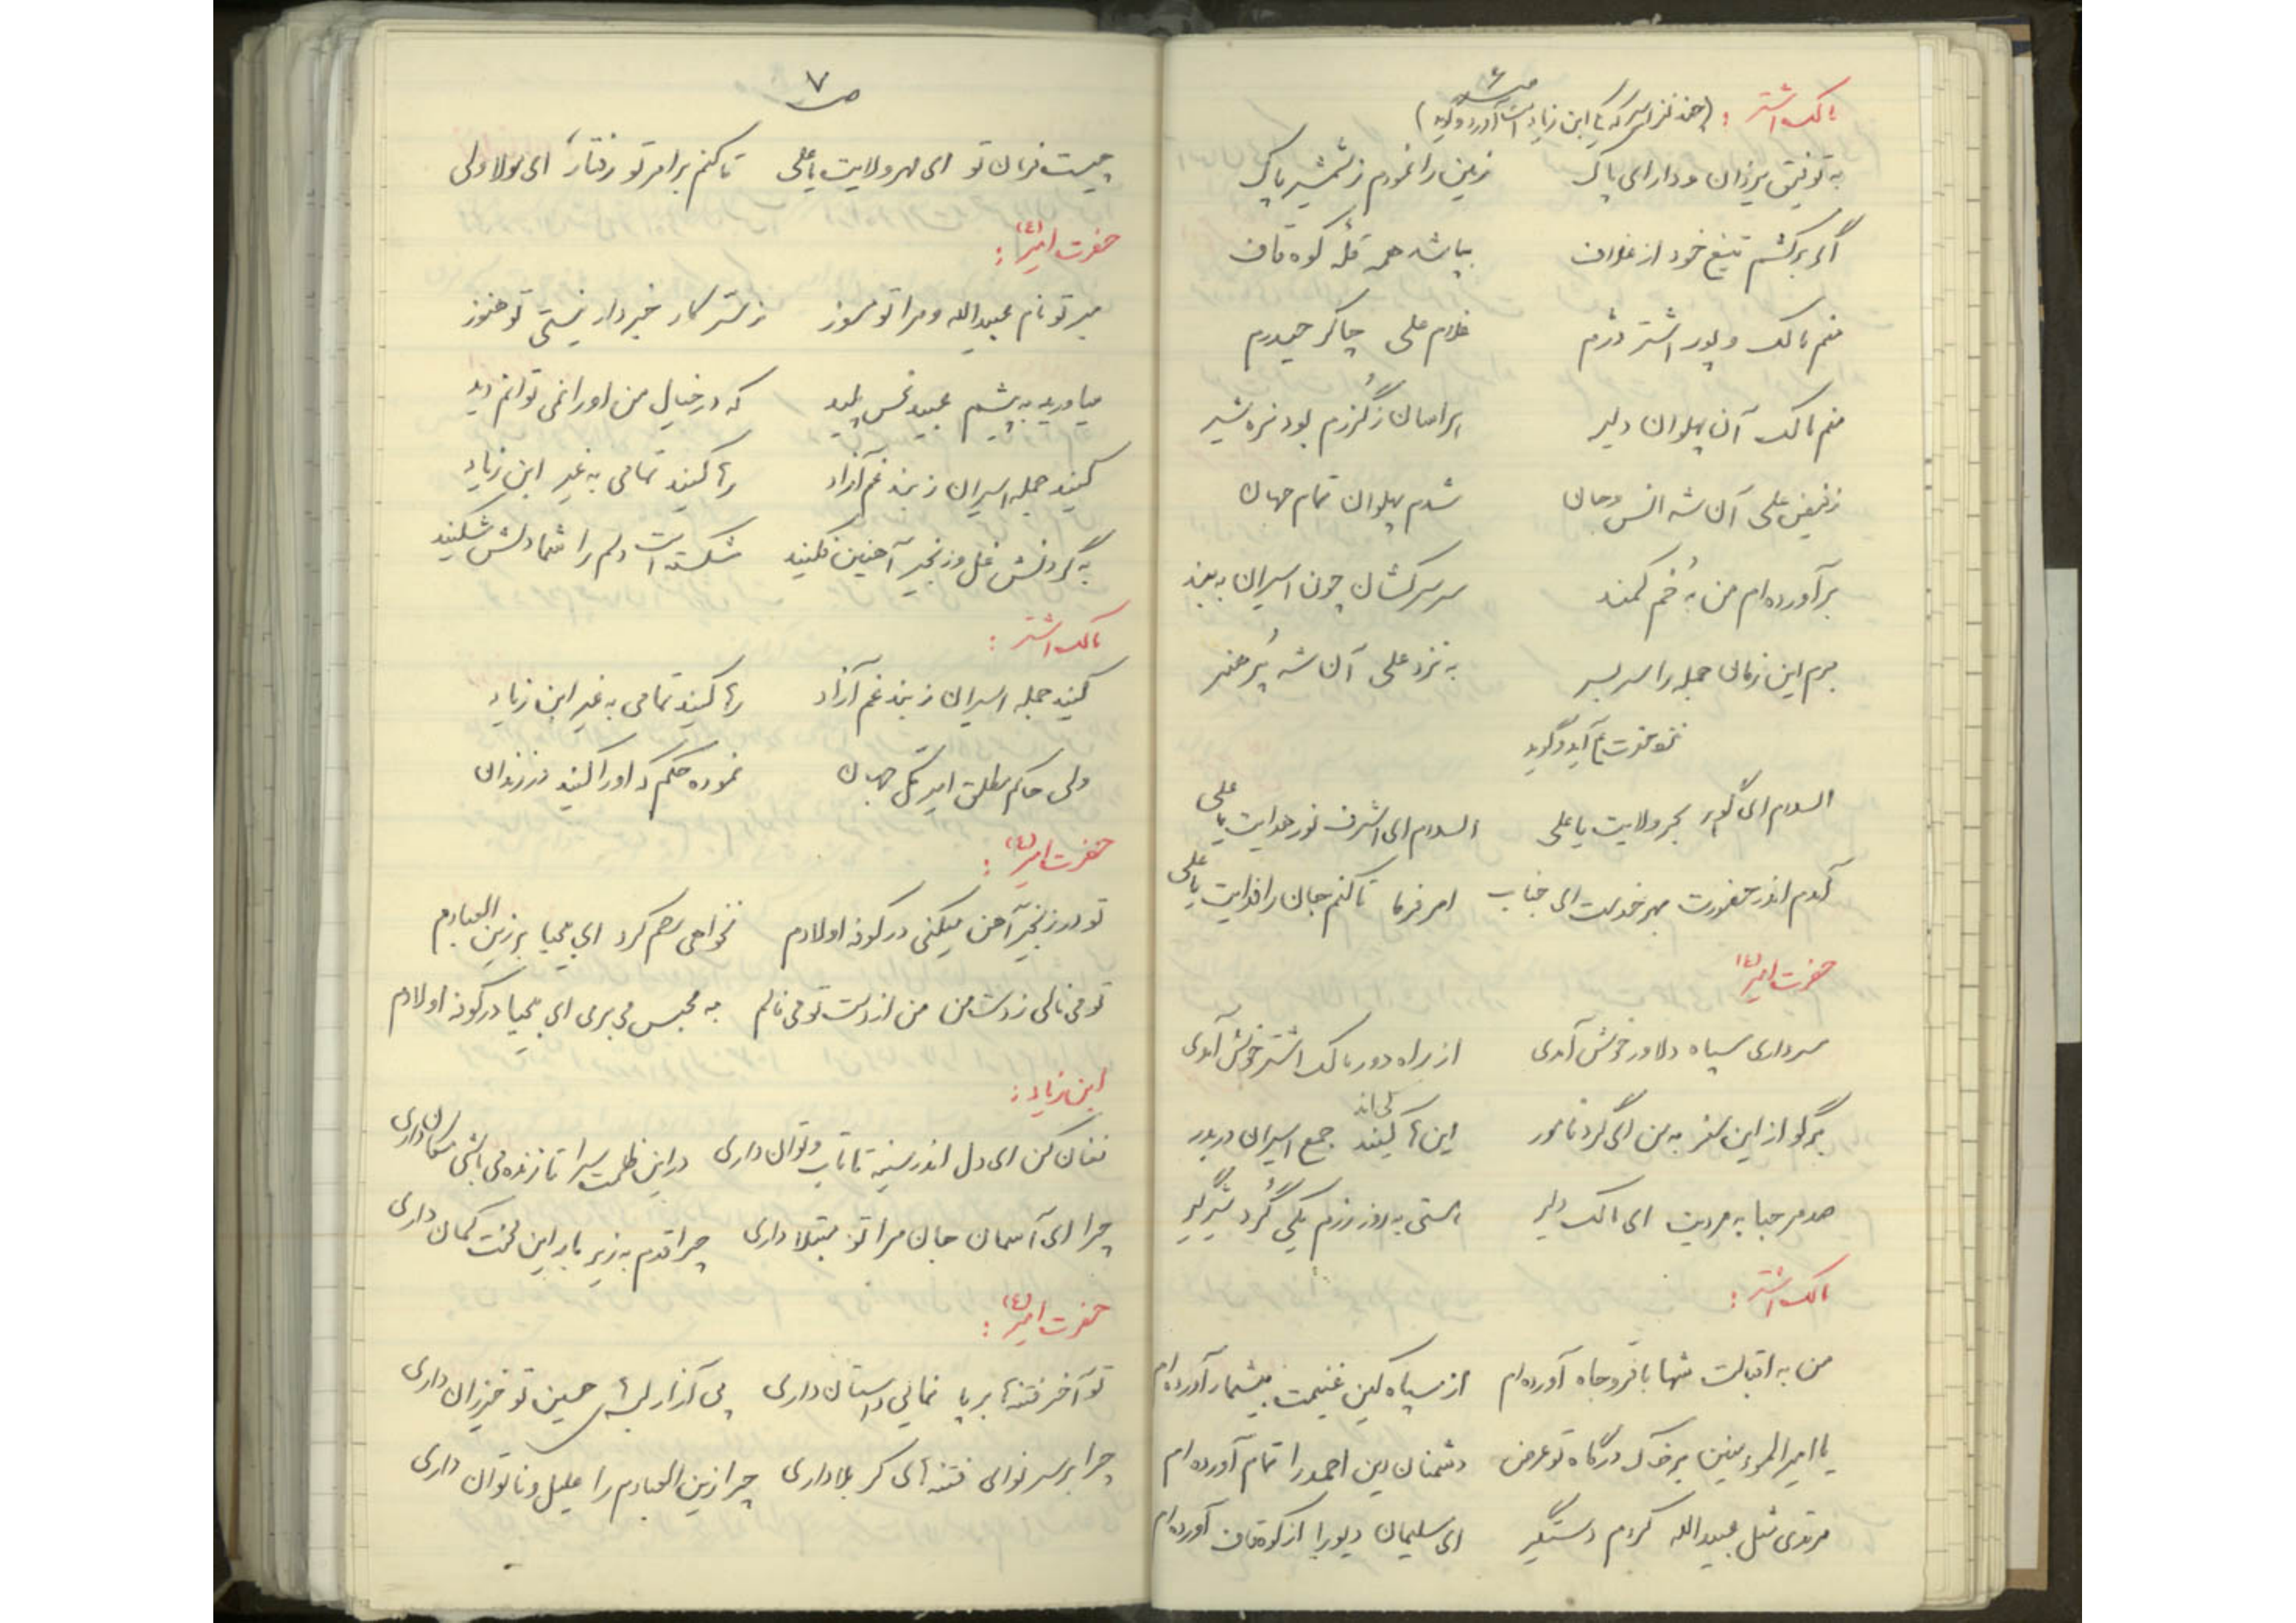 ص ۶
مالک اشتر : (چند نفر اسیر که با ابن زیاد است آورد و گوید)
به توفیق یزدان و دارای پاک زمین را نمودم ز شمشیر پاک
اگر برکشم تیغ خود از غلاف بپاشد همه قله کوه قاف
منم مالک و پور اشتر درم غلام علی چاکر حیدرم
منم مالک آن پهلوان دلیر هراسان ز گرزم بود نره شیر
ز فیض علی آن شه انس و جان شدم پهلوان تمام جهان
برآورده‌ام من به خم کمند سر سرکشان چون اسیران به بند
برم این زمان جمله را سر بسر به نزد علی آن شه پُر هنر
نزد حضرت آید و گوید
السلام ای گوهر بحر ولایت یا علی السلام ای اشرف نور هدایت یا علی
آمدم اندر حضورت بهر خدمت ای جناب امر فرما تا کنم جان را فدایت یا علی
حضرت امیر (ع)
سرداری سپاه دلاور خوش آمدی از راه دور مالک اشتر خوش آمدی
برگو از این سفر به من ای گرد نامور این‌ها کیند کی‌اند جمع اسیران دربدر
صد مرحبا به مردیت ای مالک دلیر هستی به روز رزم یکی گُرد شیرگیر
مالک اشتر :
من به اقبالت شها با فر و جاه آورده‌ام از سپاه کین غنیمت بیشمار آورده‌ام
یا امیرالمؤمنین بر خاک درگاه تو عرض دشمنان دین احمد را تمام آورده‌ام
مرتدی مثل عبیدالله کردم دستگیر ای سلیمان دیو را از کوه قاف آورده‌ام
ص ۷
چیست فرمان تو ای مهر ولایت یا علی تا کنم بر امر تو رفتار ای مولا ولی
حضرت امیر (ع) :
مبر تو نام عبیدالله و مرا تو مسوز ز سر کار خبردار نیستی تو هنوز
میاورید به پیشم عبید نحس پلید که در خیال من او را نمی‌توانم دید
کنید جمله اسیران ز بند غم آزاد رها کنید تمامی به غیر ابن زیاد
به گردنش غل و زنجیر آهنین فکنید شکسته است دلم را شما دلش شکنید
مالک اشتر :
کنید جمله اسیران ز بند غم آزاد رها کنید تمامی به غیر ابن زیاد
ولی حاکم مطلق امیر کل جهان نموده حکم که او را کنید در زندان
حضرت امیر (ع) :
تو در زنجیر آهن میکنی در کوفه اولادم نخواهی رحم کرد ای بی‌حیا بر زین العبادم
تو می‌نالی ز دست من من از دست تو می‌نالم به محبس می‌بری ای بی‌حیا در کوفه اولادم
ابن زیاد :
فغان کن ای دل اندر سینه تا تاب و توان داری در این ظلمت سرا تا زنده می‌باشی مکان داری
چرا ای آسمان جان مرا تو مبتلا داری چرا قدم به زیر بار این محنت کمان داری
حضرت امیر (ع) :
تو آخر فتنه‌ها بر پا نمائی داستان داری پی آزار لبهای حسین تو خیزران داری
چرا بر سر نوای فتنه‌های کربلا داری چرا زین العبادم را علیل و ناتوان داری